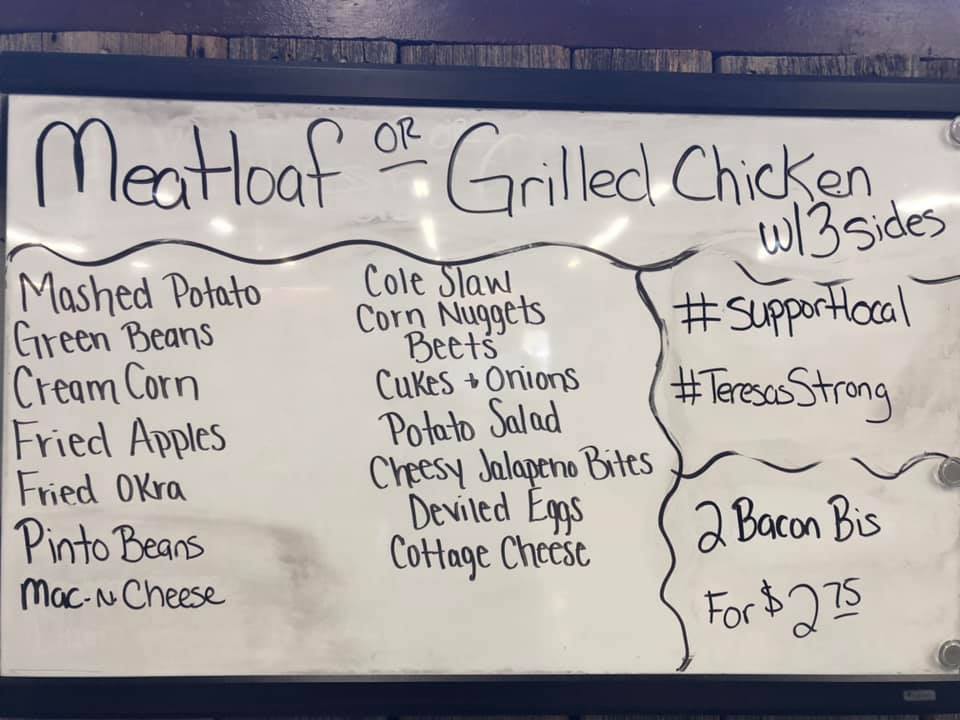 Meatloaf OR Grilled Chicken
w/3 sides
Mashed Potato
Green Beans
Cream Corn
Fried Apples
Fried Okra
Pinto Beans
Mac-N-Cheese
Cole Slaw
Corn Nuggets
Beets
Cukes + Onions
Potato Salad
Cheesy Jalapeno Bites
Deviled Eggs
Cottage Cheese
#supportlocal
#TeresasStrong
2 Bacon Bis
For $2 75